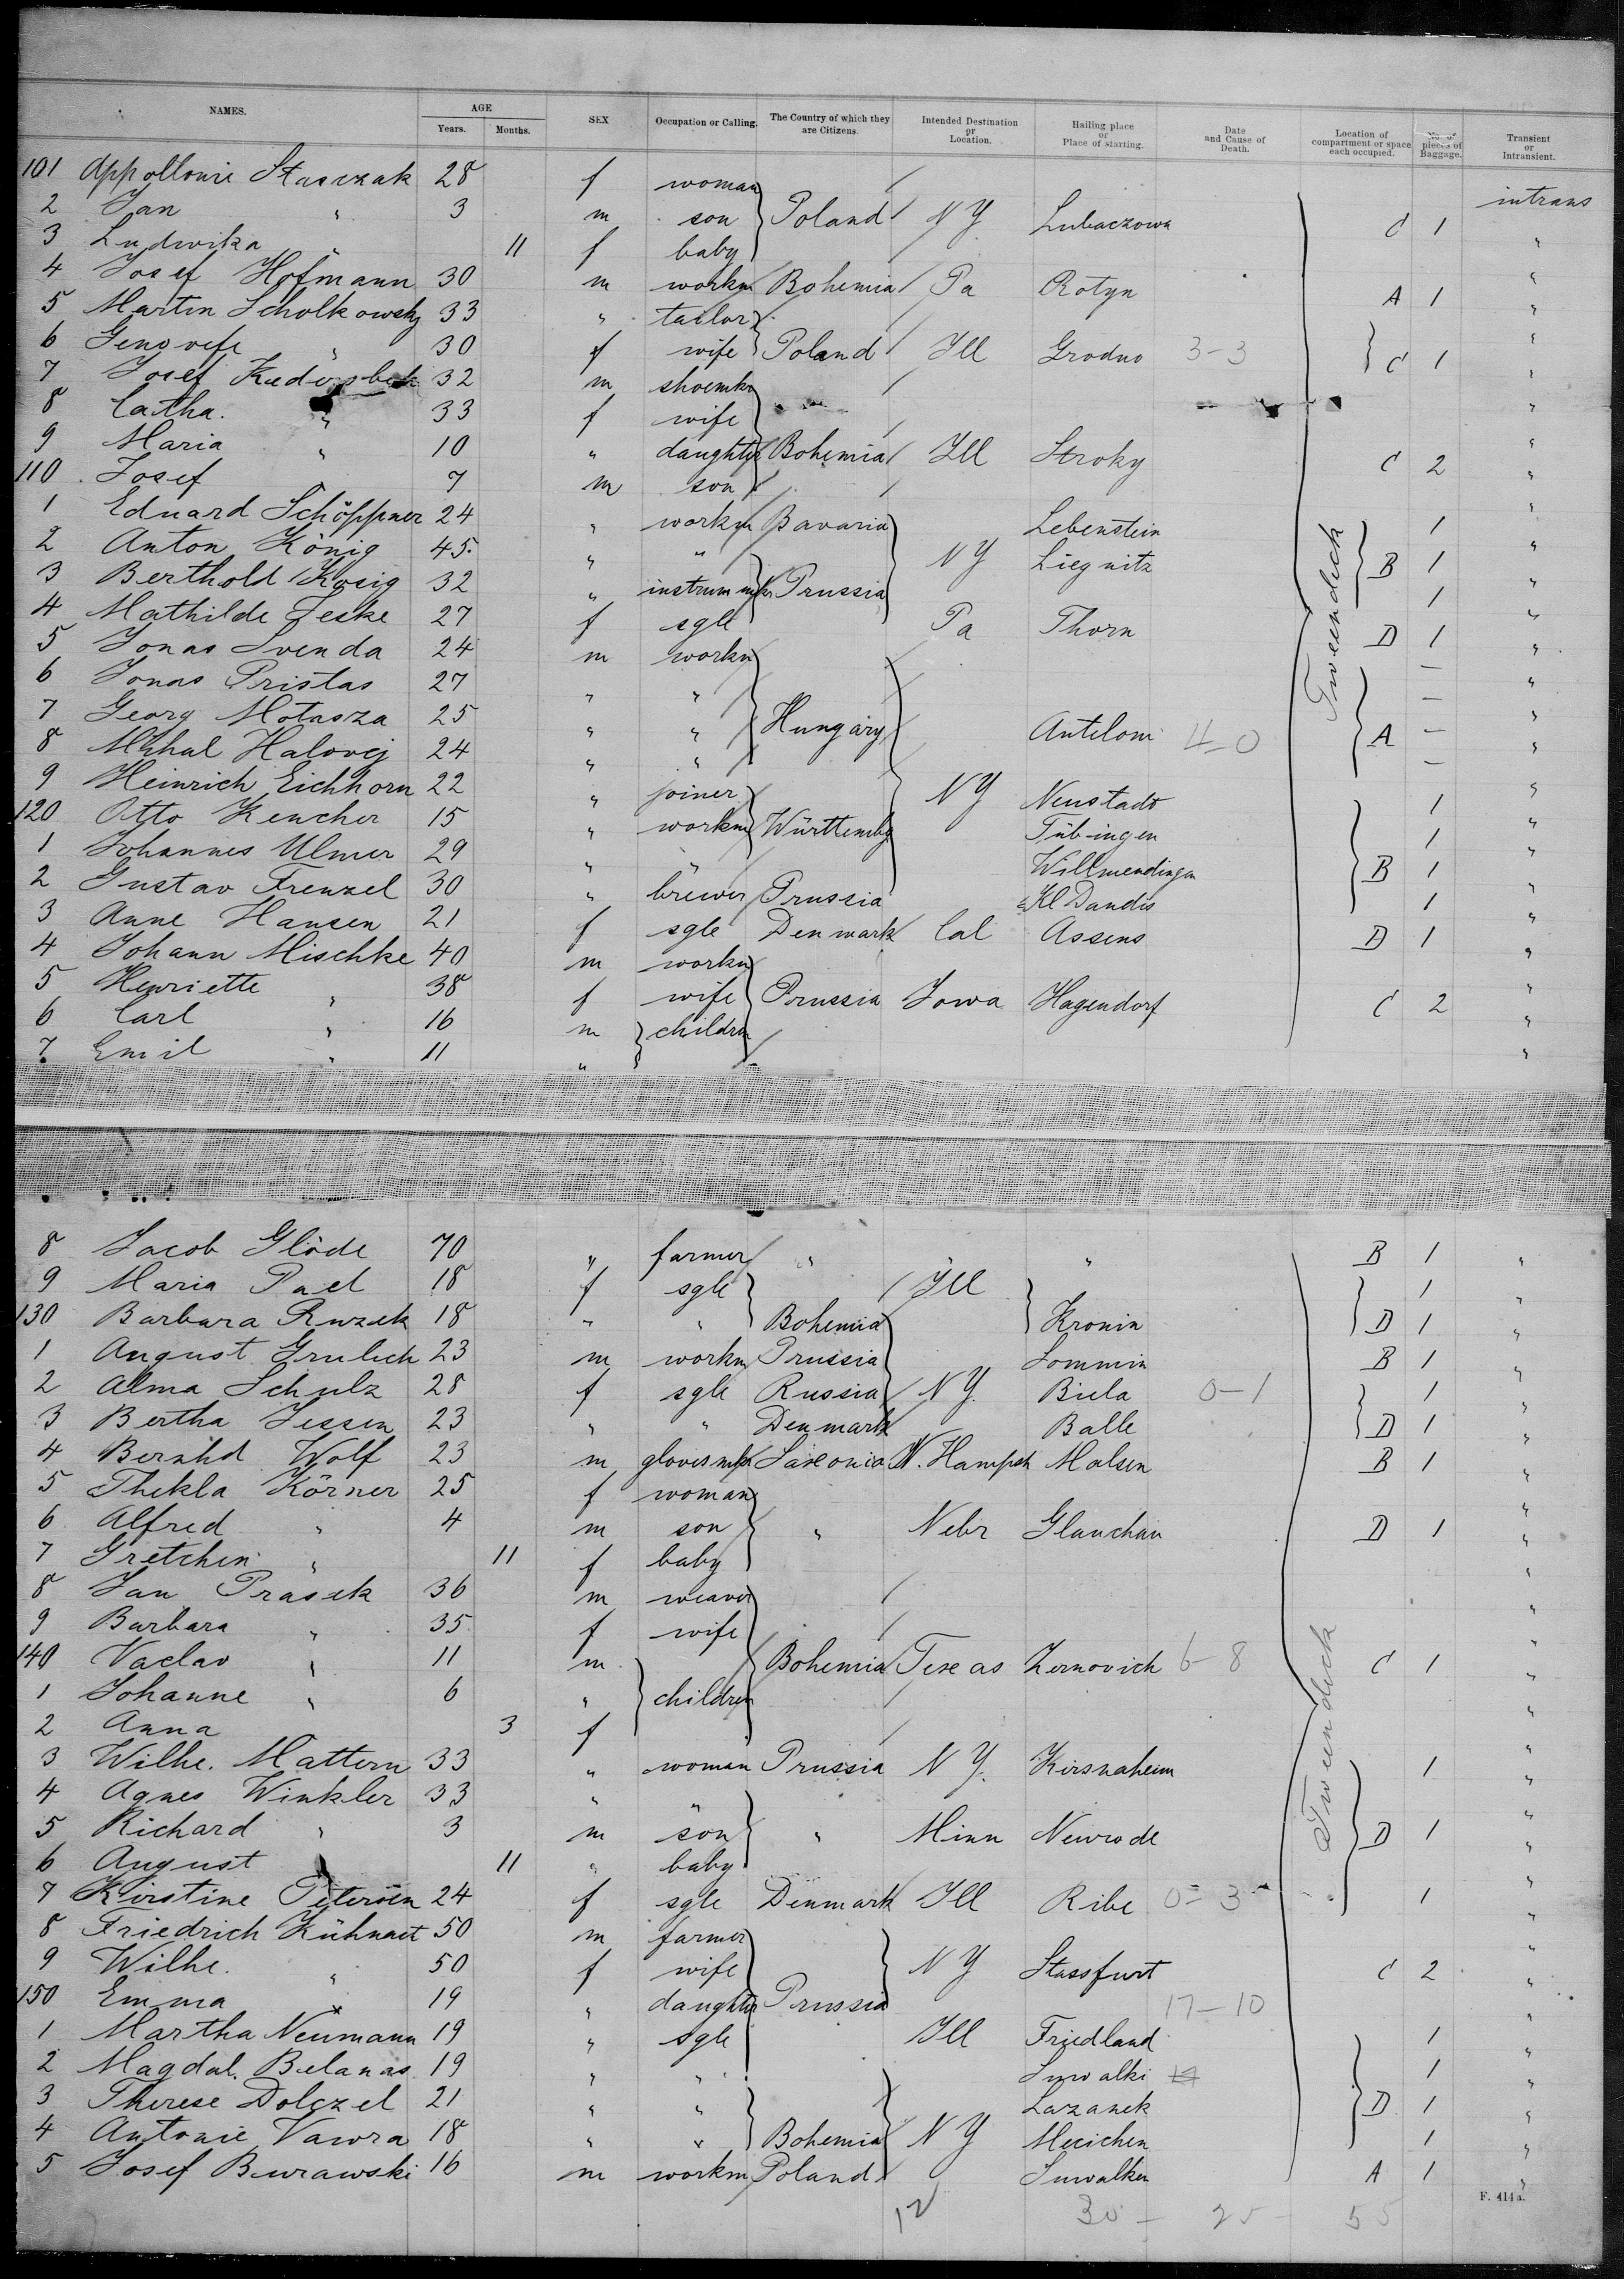 NAMES. AGE SEX Occupation or Calling. The Country of which they are Citizens. Intended Destination or Location. Hailing place or Place of starting. Date and Cause of Death. Location of compartment or space each occupied. No. of pieces of Baggage. Transient or Intransient.
Years. Months.
101 Appollonie Stasczak 28 f woman intrans
2 Jan " 3 m son Poland N Y Lubaczowa C 1 "
3 Ludwika " 11 f baby "
4 Josef Hofmann 30 m workm Bohemia Pa Rotyn A 1 "
5 Martin Scholkowsky 33 " tailor "
6 Genovefe " 30 f wife Poland Ill Grodno 3-3 C 1 "
7 Josef 32 m shoemkr "
8 Catha. " 33 f wife "
9 Maria " 10 " daughter Bohemia Ill Stroky C 2 "
110 Josef 7 m son "
1 Eduard Schöppner 24 " workm Bavaria Lebenstein 1 "
2 Anton König 45 " " N Y Liegnitz B 1 "
3 Berthold Kosig 32 " instrum mkr Prussia 1 "
4 Mathilde Jeske 27 f sgle Pa Thorn D 1 "
5 Jonas Svenda 24 m workm — "
6 Jonas Pristas 27 " " — "
7 Georg Motasza 25 " " Hungary Antelom 4-0 A — "
8 Mihal Halovej 24 " " — "
9 Heinrich Eichhorn 22 " joiner N Y Neustadt 1 "
120 Otto Kencher 15 " workm Württembg Tübingen 1 "
1 Johannes Ulmer 29 " " Willmendingen B 1 "
2 Gustav Frenzel 30 " brewer Prussia Kl Dandis 1 "
3 Anne Hansen 21 f sgle Denmark Cal Assens D 1 "
4 Johann Mischke 40 m workm "
5 Henriette " 38 f wife Prussia Iowa Hagendorf C 2 "
6 Carl " 16 m children "
7 Emil " 11 " "
Tweendeck
8 Jacob Glöde 70 " farmer " " B 1 "
9 Maria Pael 18 f sgle Ill 1 "
130 Barbara Ruzek 18 " " Bohemia Kronin D 1 "
1 August Grulich 23 m workm Prussia Sommin B 1 "
2 Alma Schulz 28 f sgle Russia N Y. Biela 0-1 1 "
3 Bertha Jessen 23 " " Denmark Balle D 1 "
4 Bernhd Wolf 23 m glovesmkr Saxonia N. Hampsh Malsen B 1 "
5 Thekla Körner 25 f woman "
6 Alfred " 4 m son " Nebr Glauchau D 1 "
7 Gretchen " 11 f baby "
8 Jan Prasek 36 m weaver "
9 Barbara " 35 f wife "
140 Vaclav " 11 m Bohemia Texas Zernovich 6-8 C 1 "
1 Johanne " 6 " children "
2 Anna 3 f "
3 Wilhe. Mattern 33 " woman Prussia N Y. Kirsnaheim 1 "
4 Agnes Winkler 33 " " "
5 Richard " 3 m son " Minn Neurode D 1 "
6 August 11 " baby "
7 Kirstine Petersen 24 f sgle Denmark Ill Ribe 0-3 1 "
8 Friedrich Kühnast 50 m farmer "
9 Wilhe. " 50 f wife N Y Stassfurt C 2 "
150 Emma " 19 " daughter Prussia 17-10 "
1 Martha Neumann 19 " sgle Ill Friedland 1 "
2 Magdal. Belanas 19 " " Suwalki 1 "
3 Therese Dolezel 21 " " Lazanek D 1 "
4 Antonie Vawra 18 " " Bohemia N Y Mecichen 1 "
5 Josef Burawski 16 m workm Poland Suwalken A 1 "
Tweendeck
F. 414a.
12 30 - 25 - 55